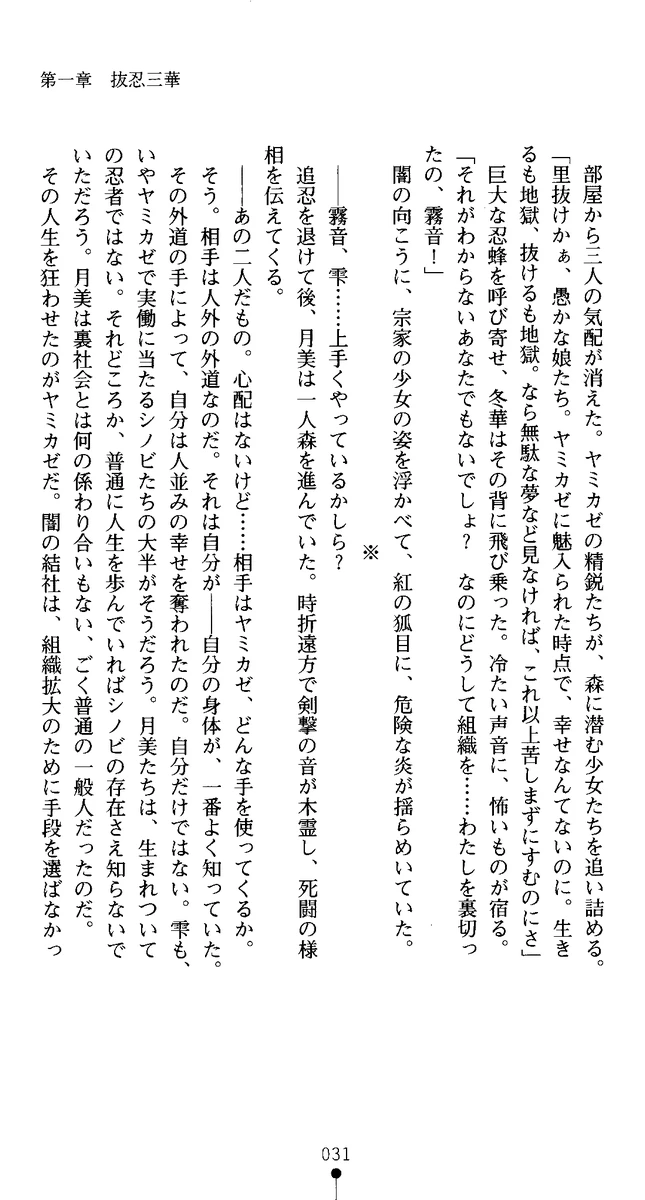 第一章　抜忍三華
　部屋から三人の気配が消えた。ヤミカゼの精鋭たちが、森に潜む少女たちを追い詰める。
「里抜けかぁ、愚かな娘たち。ヤミカゼに魅入られた時点で、幸せなんてないのに。生き
るも地獄、抜けるも地獄。なら無駄な夢など見なければ、これ以上苦しまずにすむのにさ」
　巨大な忍蜂を呼び寄せ、冬華はその背に飛び乗った。冷たい声音に、怖いものが宿る。
「それがわからないあなたでもないでしょ？　なのにどうして組織を……わたしを裏切っ
たの、霧音！」
　闇の向こうに、宗家の少女の姿を浮かべて、紅の狐目に、危険な炎が揺らめいていた。
※
　――霧音、雫……上手くやっているかしら？
　追忍を退けて後、月美は一人森を進んでいた。時折遠方で剣撃の音が木霊し、死闘の様
相を伝えてくる。
　――あの二人だもの。心配はないけど……相手はヤミカゼ、どんな手を使ってくるか。
　そう。相手は人外の外道なのだ。それは自分が――自分の身体が、一番よく知っていた。
　その外道の手によって、自分は人並みの幸せを奪われたのだ。自分だけではない。雫も、
いやヤミカゼで実働に当たるシノビたちの大半がそうだろう。月美たちは、生まれついて
の忍者ではない。それどころか、普通に人生を歩んでいればシノビの存在さえ知らないで
いただろう。月美は裏社会とは何の係わり合いもない、ごく普通の一般人だったのだ。
　その人生を狂わせたのがヤミカゼだ。闇の結社は、組織拡大のために手段を選ばなかっ
031